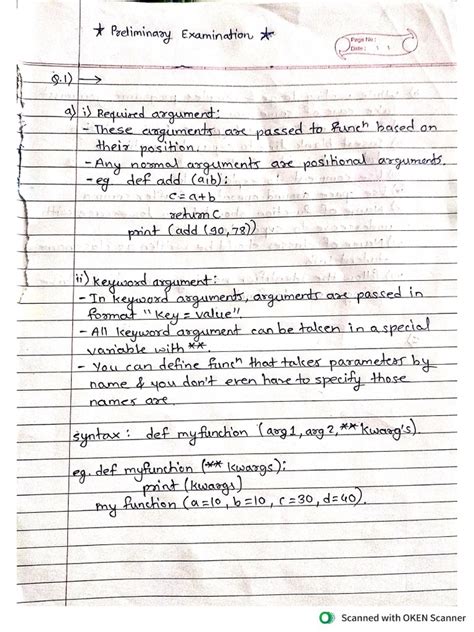 ★ Preliminary Examination ★
Page No:
Date: 1 1
Q.1) →
a) i) Required argument:
- These arguments are passed to funcⁿ based on
their position.
- Any normal arguments are positional arguments.
- eg def add (a,b):
c=a+b
return c
print (add (90,78))
ii) keyword argument:
- In keyword arguments, arguments are passed in
format "key = value".
- All keyword argument can be taken in a special
variable with **.
- You can define funcⁿ that takes parameters by
name & you don't even have to specify those
names are.
syntax: def myfunction (arg1, arg2, ** kwarg's).
eg. def myfunction (** kwargs):
print (kwargs)
my function (a=10, b=10, c=30, d=40).
Scanned with OKEN Scanner